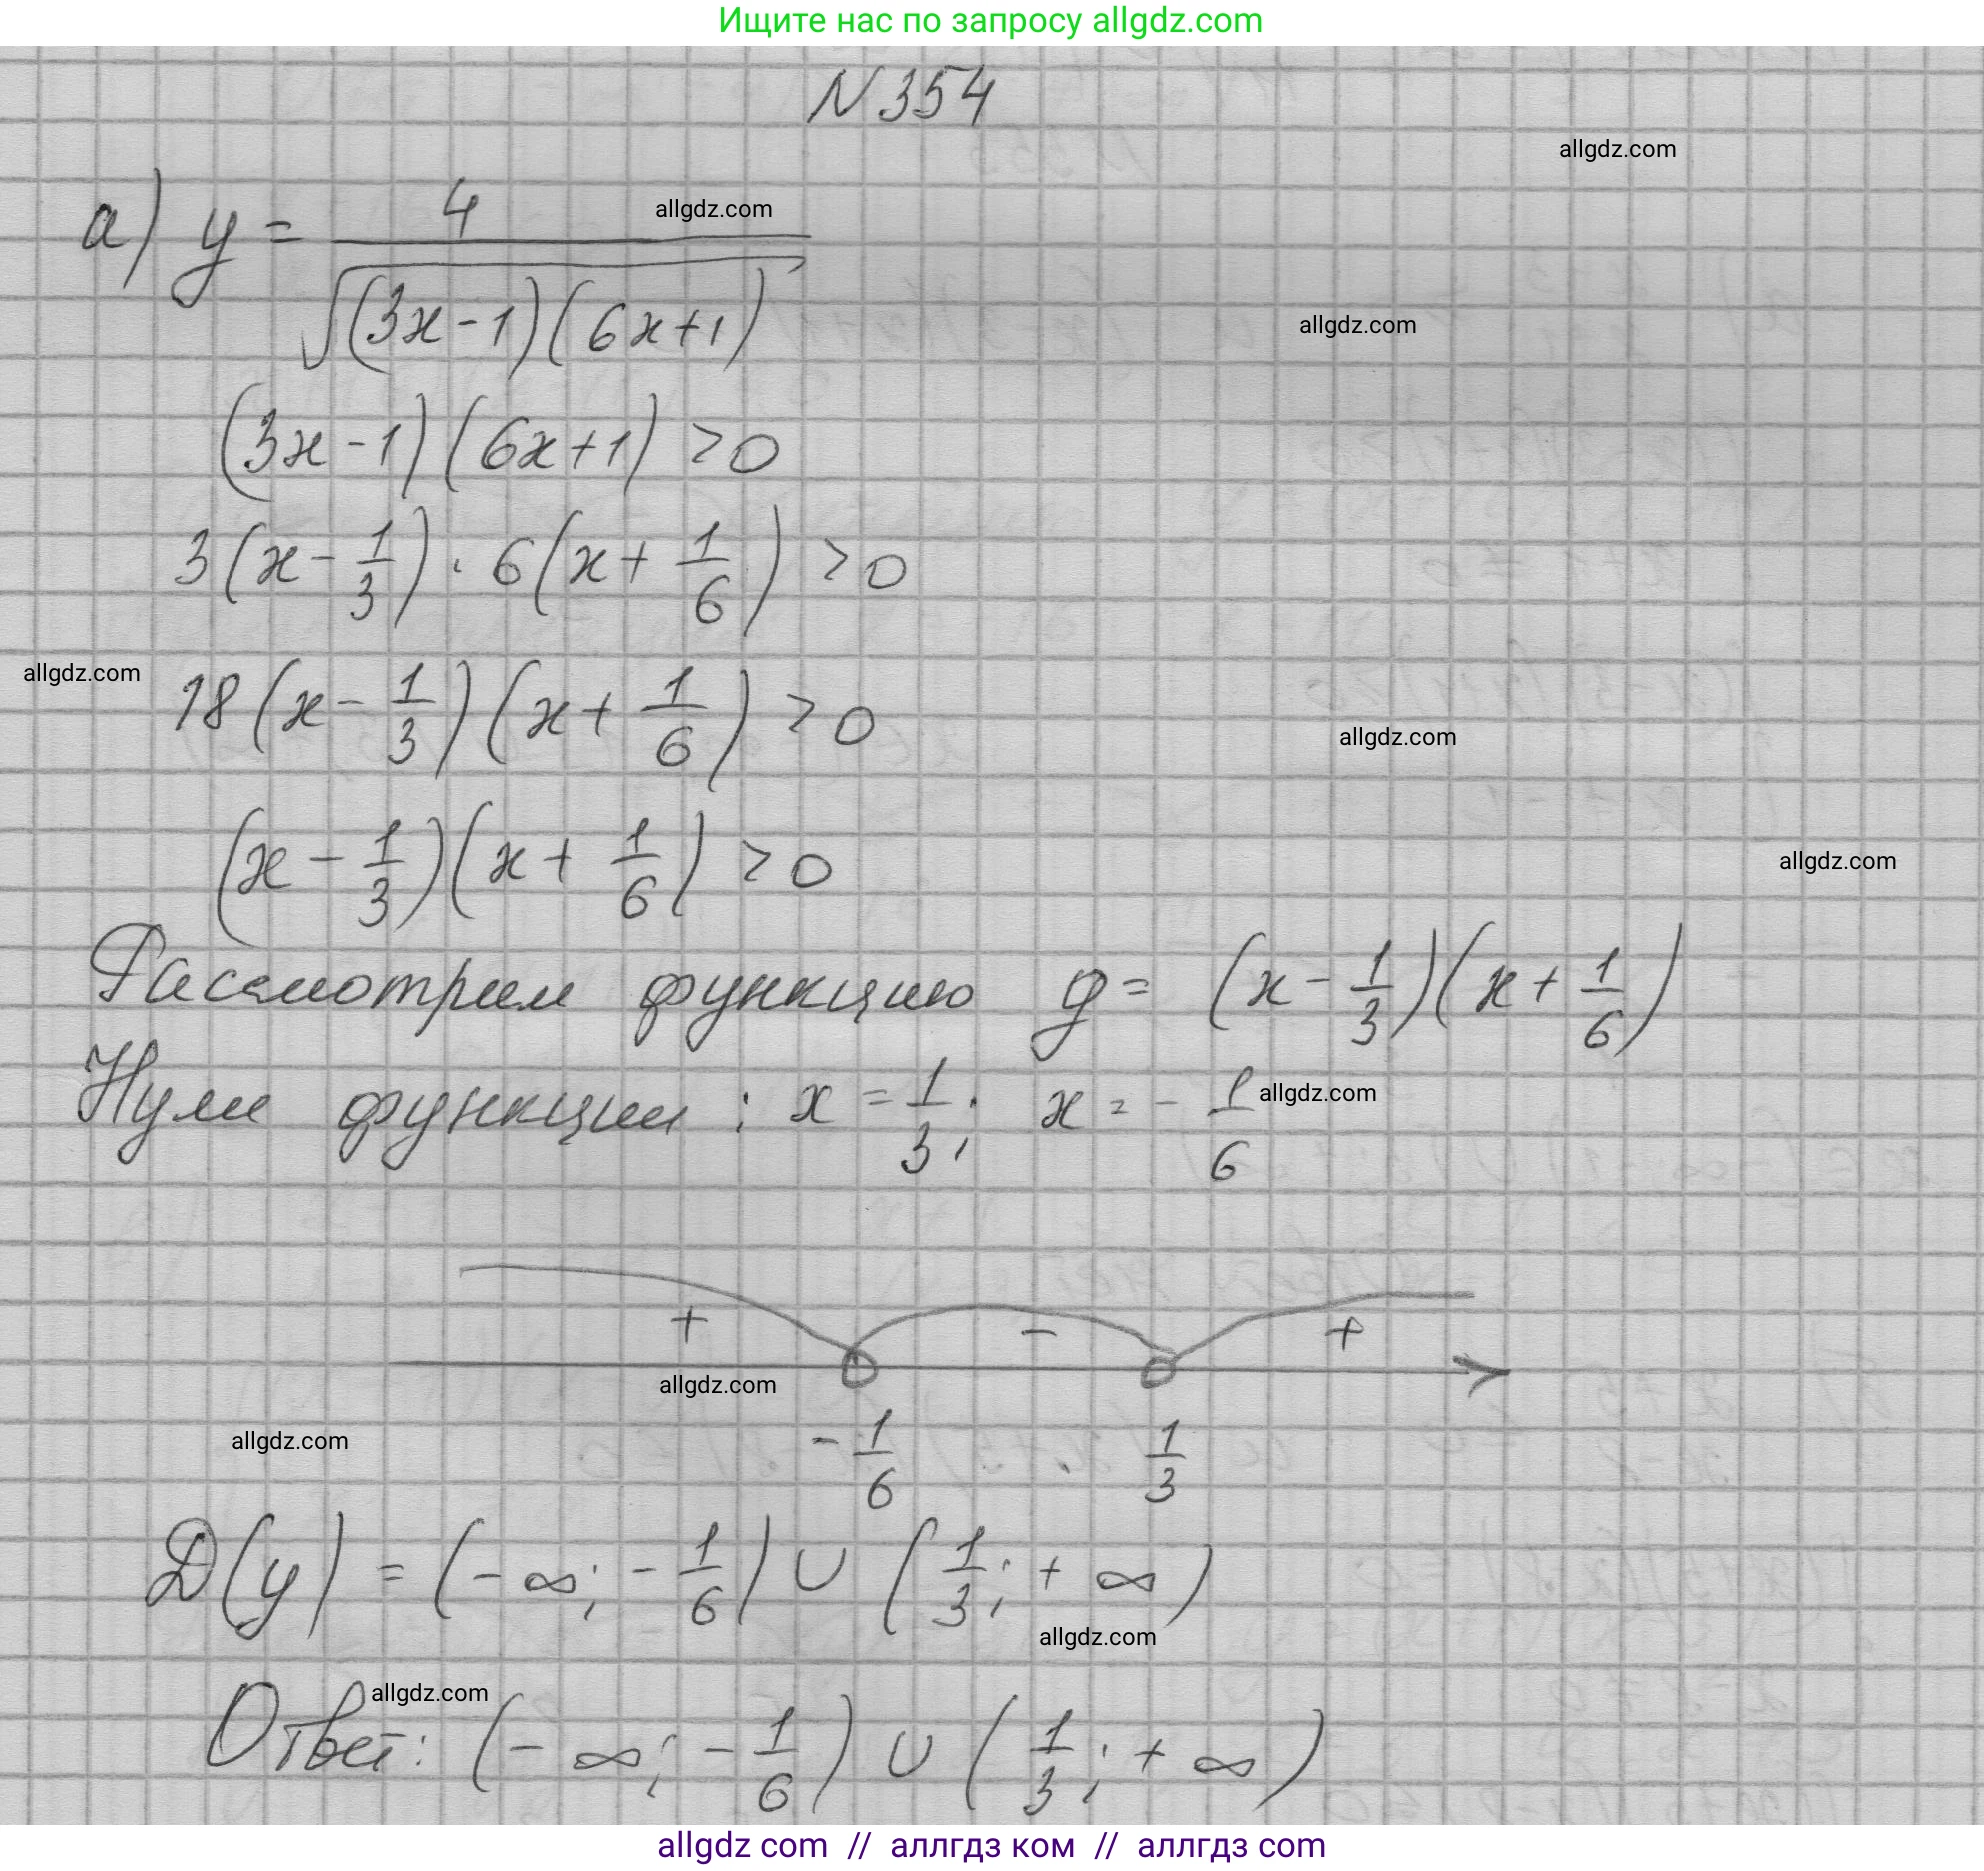 Ищите нас по запросу allgdz.com
N 354
allgdz.com
а) y = 4 / √((3x-1)(6x+1))
allgdz.com
allgdz.com
(3x-1)(6x+1) > 0
3(x - 1/3) · 6(x + 1/6) > 0
allgdz.com
18(x - 1/3)(x + 1/6) > 0
allgdz.com
(x - 1/3)(x + 1/6) > 0
allgdz.com
Рассмотрим функцию y = (x - 1/3)(x + 1/6)
Нули функции: x = 1/3; x = - 1/6
allgdz.com
+ - +
allgdz.com
allgdz.com
- 1/6 1/3
D(y) = (-∞; - 1/6) ∪ (1/3; +∞)
allgdz.com
allgdz.com
Ответ: (-∞; - 1/6) ∪ (1/3; +∞)
allgdz com // аллгдз ком // аллгдз com